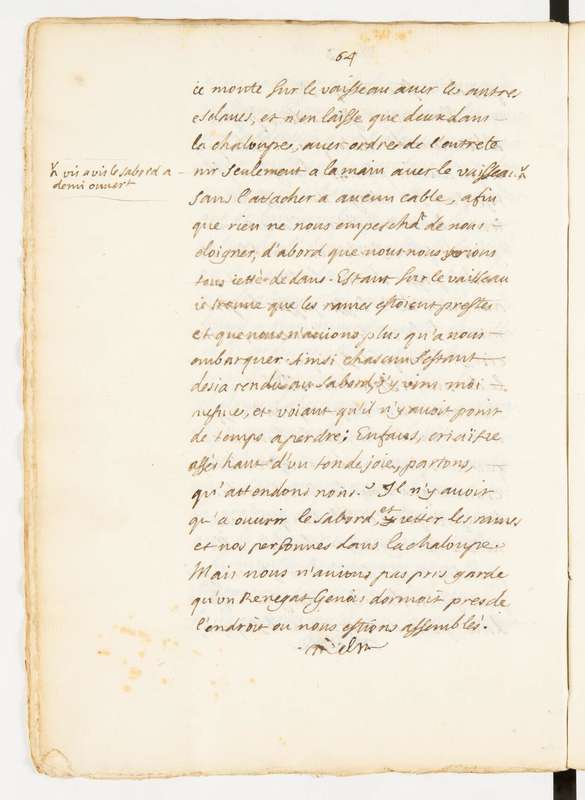 64
ie monte sur le vaisseau avec les autres
esclaves, et n'en laisse que deux dans
la chaloupe, avec ordre de l'entrete
nir seulement a la main avec le vaisseau
vis a vis le sabord a
demi ouvert
sans l'atacher a aucun cable, afin
que rien ne nous empeschât de nous
eloigner, d'abord que nous nous serions
tous iettés dedans. Estant sur le vaisseau
ie trouve que les rames estoient prestes
et que nous n'avions plus qu'a nous
embarquer. Ainsi chascun s'estant
desia rendu au sabord, i'y vins moi
mesme, et voiant qu'il n'y avoit point
de temps a perdre; Enfans, criai ie
assés haut d'un ton de joie, partons,
qu'attendons nous. Il n'y avoit
qu'a ouvrir le sabord, et ietter les rames
et nos personnes dans la chaloupe.
Mais nous n'avions pas pris garde
qu'un Renegat Genois dormoit pres de
l'endroit ou nous estions assemblés.